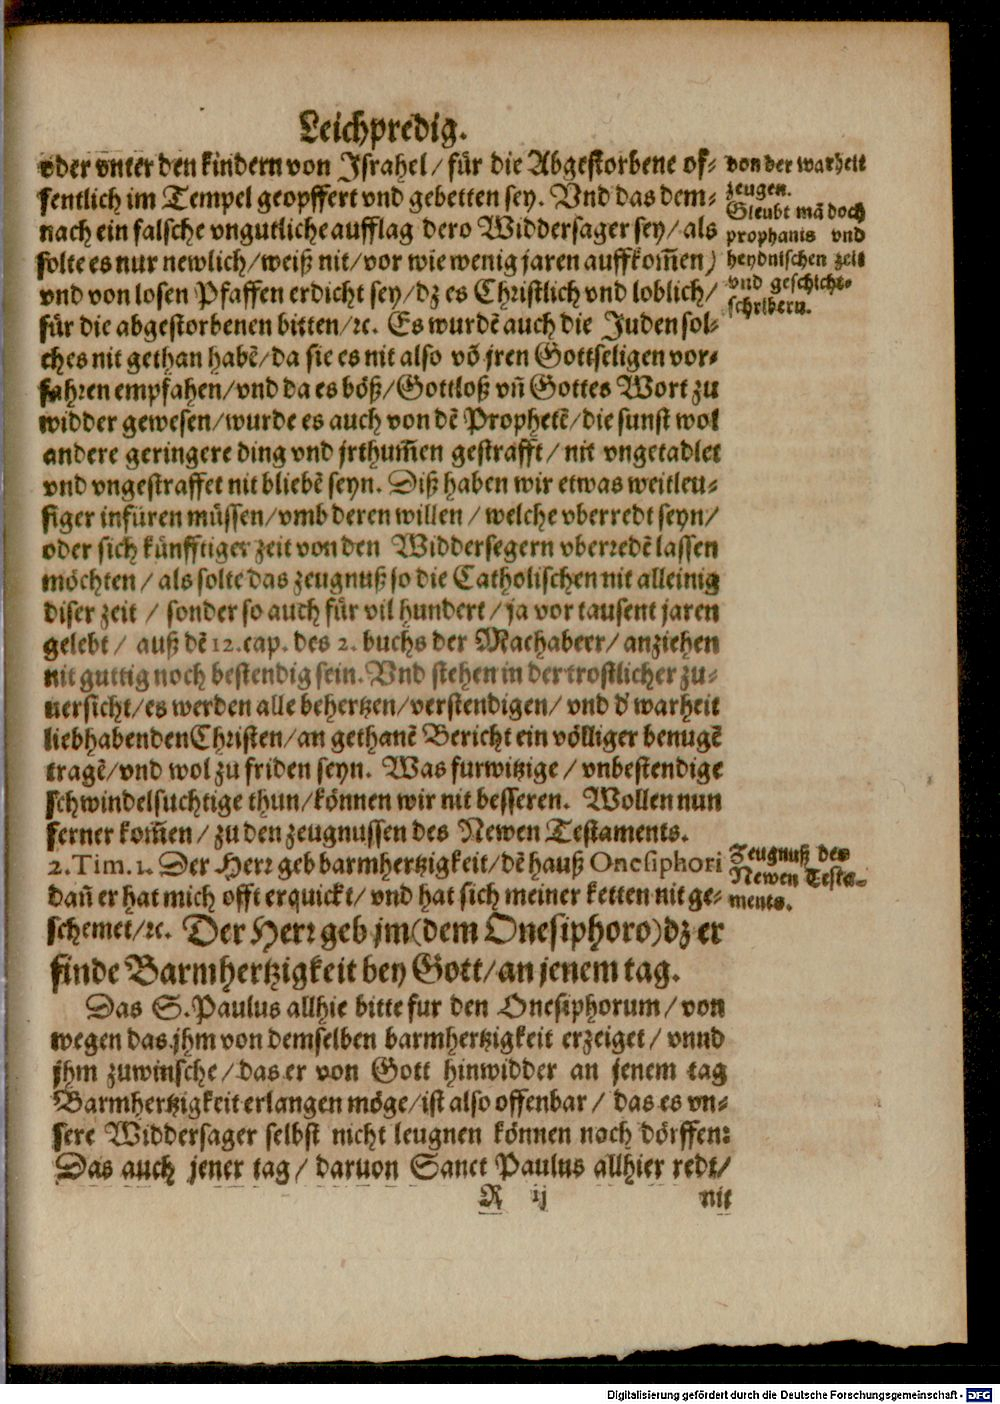 Leichpredig.
oder vnter den kindern von Israhel/ für die Abgestorbene of-
fentlich im Tempel geopffert vnd gebetten sey. Vnd das dem-
nach ein falsche vngutliche aufflag dero Widdersager sey/ als
solte es nur newlich/ weiß nit/ vor wie wenig jaren auffkom̃en/
vnd von losen Pfaffen erdicht sey/ dz es Christlich vnd loblich/
für die abgestorbenen bitten/ ꝛc. Es wurdẽ auch die Juden sol-
ches nit gethan habẽ/ da sie es nit also võ jren Gottseligen vor-
fahren empfahen/ vnd da es böß/ Gottloß vñ Gottes Wort zu
widder gewesen/ wurde es auch von dẽ Prophetẽ/ die sunst wol
andere geringere ding vnd jrthum̃en gestrafft/ nit vngetadlet
vnd vngestraffet nit bliebẽ seyn. Diß haben wir etwas weitleu-
figer infüren müssen/ vmb deren willen/ welche vberredt seyn/
oder sich künfftiger zeit von den Widdersegern vberredẽ lassen
möchten/ als solte das zeugnuß so die Catholischen nit alleinig
diser zeit/ sonder so auch für vil hundert/ ja vor tausent jaren
gelebt/ auß dẽ 12. cap. des 2. buchs der Machabeer/ anziehen
nit guttig noch bestendig sein. Vnd stehen in der trostlicher zu-
uersicht/ es werden alle behertzen/ verstendigen/ vnd d' warheit
liebhabenden Christen/ an gethanẽ Bericht ein völliger benugẽ
tragẽ/ vnd wol zu friden seyn. Was furwitzige/ vnbestendige
schwindelsuchtige thun/ können wir nit besseren. Wollen nun
ferner kom̃en/ zu den zeugnussen des Newen Testaments.
2. Tim. 1. Der Herr geb barmhertzigkeit/ dẽ hauß Onesiphori
dañ er hat mich offt erquickt/ vnd hat sich meiner ketten nit ge-
schemet/ ꝛc. Der Herr geb jm (dem Onesiphoro) dz er
finde Barmhertzigkeit bey Gott/ an jenem tag.
Das S. Paulus allhie bitte fur den Onesiphorum/ von
wegen das jhm von demselben barmhertzigkeit erzeiget/ vnnd
jhm zuwinsche/ das er von Gott hinwidder an jenem tag
Barmhertzigkeit erlangen möge/ ist also offenbar/ das es vn-
sere Widdersager selbst nicht leugnen können noch dörffen:
Das auch jener tag/ daruon Sanct Paulus allhier redt/
R ij
nit
von der warheit
zeugen.
Gleubt mã doch
prophanis vnd
heydnischen zeit
vnd geschicht-
schribern.
Zeugnuß des
Newen Testa-
ments.
Digitalisierung gefördert durch die Deutsche Forschungsgemeinschaft - DFG